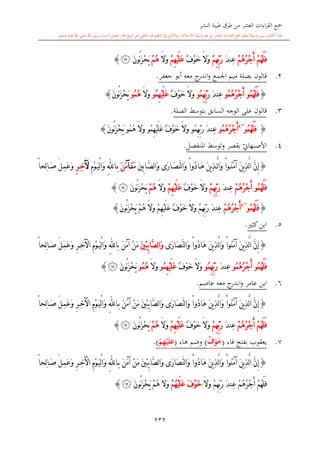 جمع القراءات العشر من طرق طيبة النشر
﴿ فَلَهُمْ أَجْرُهُمْ عِندَ رَبِّهِمْ وَلَا خَوْفٌ عَلَيْهِمْ وَلَا هُمْ يَحْزَنُونَ ﴾
٢. قالون بصلة ميم الجمع واندرج معه أبو جعفر.
﴿ فَلَهُمُو أَجْرُهُمُو عِندَ رَبِّهِمُو وَلَا خَوْفٌ عَلَيْهِمُو وَلَا هُمُو يَحْزَنُونَ ﴾
٣. قالون على الوجه السابق بتوسط الصلة.
﴿ فَلَهُمُو أَجْرُهُمُو عِندَ رَبِّهِمُو وَلَا خَوْفٌ عَلَيْهِمُو وَلَا هُمُو يَحْزَنُونَ ﴾
٤. الأصبهاني بقصر وتوسط المنفصل.
﴿ إِنَّ الَّذِينَ آمَنُوا وَالَّذِينَ هَادُوا وَالنَّصَارَى وَالصَّابِينَ مَنَ آمَنَ بِاللَّهِ وَالْيَوْمِ الَاخِرِ وَعَمِلَ صَالِحاً
فَلَهُمُو أَجْرُهُمْ عِندَ رَبِّهِمْ وَلَا خَوْفٌ عَلَيْهِمْ وَلَا هُمْ يَحْزَنُونَ ﴾
﴿ فَلَهُمُو أَجْرُهُمْ عِندَ رَبِّهِمْ وَلَا خَوْفٌ عَلَيْهِمْ وَلَا هُمْ يَحْزَنُونَ ﴾
٥. ابن كثير.
﴿ إِنَّ الَّذِينَ آمَنُوا وَالَّذِينَ هَادُوا وَالنَّصَارَى وَالصَّابِئِينَ مَنْ آمَنَ بِاللَّهِ وَالْيَوْمِ الْآخِرِ وَعَمِلَ صَالِحاً
فَلَهُمُو أَجْرُهُمُو عِندَ رَبِّهِمُو وَلَا خَوْفٌ عَلَيْهِمُو وَلَا هُمُو يَحْزَنُونَ ﴾
٦. ابن عامر واندرج معه عاصم.
﴿ إِنَّ الَّذِينَ آمَنُوا وَالَّذِينَ هَادُوا وَالنَّصَارَى وَالصَّابِئِينَ مَنْ آمَنَ بِاللَّهِ وَالْيَوْمِ الْآخِرِ وَعَمِلَ صَالِحاً
فَلَهُمْ أَجْرُهُمْ عِندَ رَبِّهِمْ وَلَا خَوْفٌ عَلَيْهِمْ وَلَا هُمْ يَحْزَنُونَ ﴾
٧. يعقوب بفتح فاء (خَوْفَ) وضم هاء (عَلَيْهُمْ).
﴿ إِنَّ الَّذِينَ آمَنُوا وَالَّذِينَ هَادُوا وَالنَّصَارَى وَالصَّابِئِينَ مَنْ آمَنَ بِاللَّهِ وَالْيَوْمِ الْآخِرِ وَعَمِلَ صَالِحاً
فَلَهُمْ أَجْرُهُمْ عِندَ رَبِّهِمْ وَلَا خَوْفَ عَلَيْهُمْ وَلَا هُمْ يَحْزَنُونَ ﴾
٢٣٢